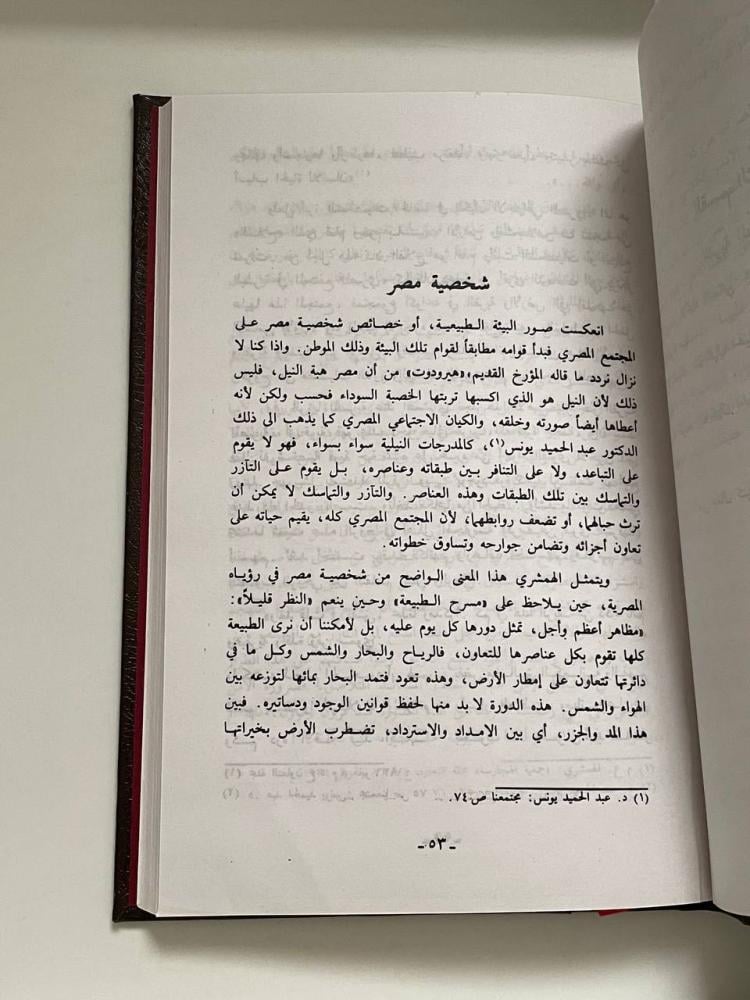 شخصية مصر
انعكست صور البيئة الطبيعية، أو خصائص شخصية مصر على
المجتمع المصري فبدأ قوامه مطابقاً لقوام تلك البيئة وذلك الموطن. واذا كنا لا
نزال نردد ما قاله المؤرخ القديم، «هيرودوت» من أن مصر هبة النيل، فليس
ذلك لأن النيل هو الذي اكسبها تربتها الخصبة السوداء فحسب ولكن لأنه
أعطاها أيضاً صورته وخلقه، والكيان الاجتماعي المصري كما يذهب الى ذلك
الدكتور عبد الحميد يونس(١)، كالمدرجات النيلية سواء بسواء، فهو لا يقوم
على التباعد، ولا على التنافر بين طبقاته وعناصره، بل يقوم على التآزر
والتماسك بين تلك الطبقات وهذه العناصر. والتآزر والتماسك لا يمكن أن
ترث حبالهما، أو تضعف روابطهما، لأن المجتمع المصري كله، يقيم حياته على
تعاون أجزائه وتضامن جوارحه وتساوق خطواته.
ويتمثل الهمشري هذا المعنى الواضح من شخصية مصر في رؤياه
المصرية، حين يلاحظ على «مسرح الطبيعة» وحين ينعم «النظر قليلاً»:
«مظاهر أعظم وأجل، تمثل دورها كل يوم عليه، بل لأمكننا أن نرى الطبيعة
كلها تقوم بكل عناصرها للتعاون، فالرياح والبحار والشمس وكل ما في
دائرتها تتعاون على إمطار الأرض، وهذه تعود فتمد البحار بمائها لتوزعه بين
الهواء والشمس. هذه الدورة لا بد منها لحفظ قوانين الوجود ودساتيره. فبين
هذا المد والجزر، أي بين الامداد والاسترداد، تضطرب الأرض بخيراتها
(١) د. عبد الحميد يونس: مجتمعنا ص ٧٤.
- ٥٣ -